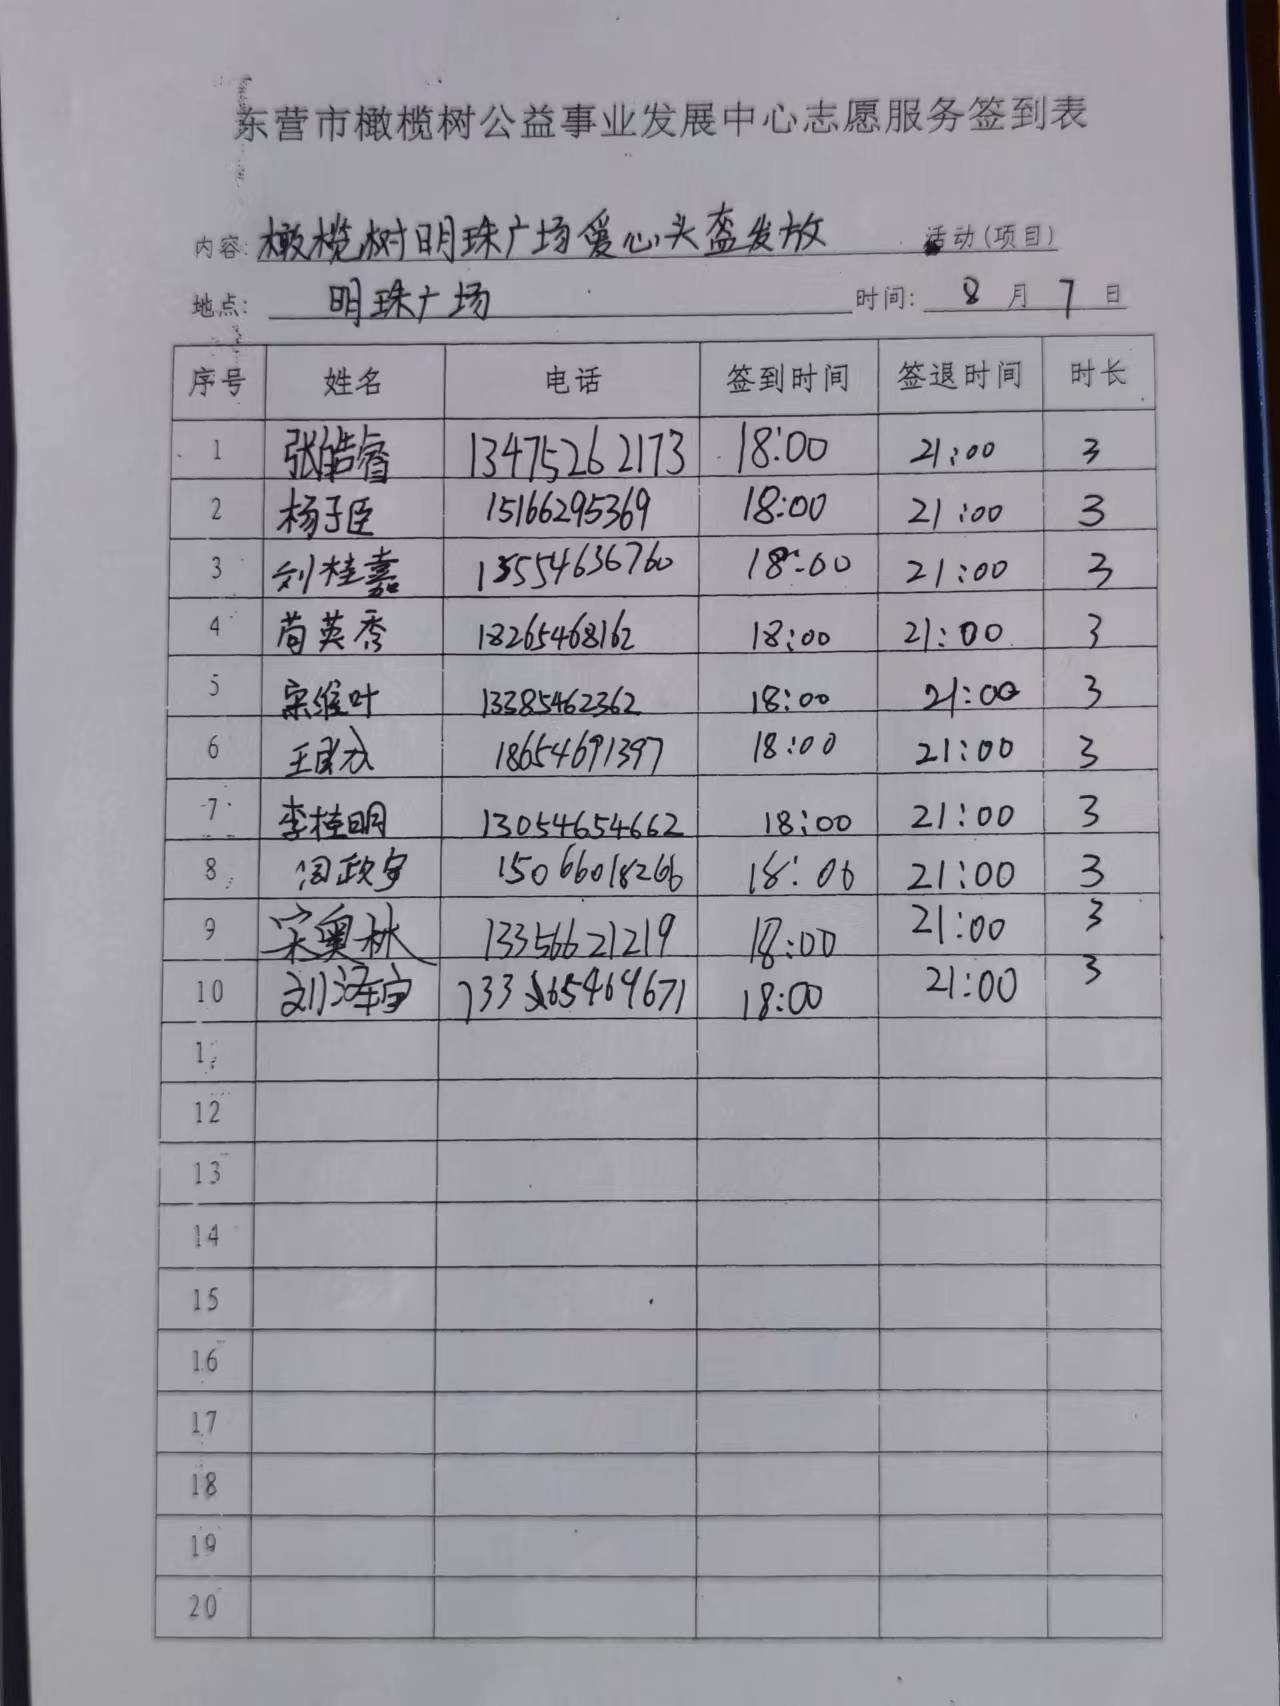 东营市橄榄树公益事业发展中心志愿服务签到表
内容: 橄榄树明珠广场爱心头盔发放 活动(项目)
地点: 明珠广场 时间: 8 月 7 日
序号 姓名 电话 签到时间 签退时间 时长
1 张皓睿 13475262173 18:00 21:00 3
2 杨子臣 15166295369 18:00 21:00 3
3 刘桂嘉 13554636760 18:00 21:00 3
4 苘英秀 18265468162 18:00 21:00 3
5 宋维叶 13385462362 18:00 21:00 3
6 18654691397 18:00 21:00 3
7 李桂明 13054654662 18:00 21:00 3
8 闫政宇 15066018266 18:00 21:00 3
9 宋奥林 13356621219 18:00 21:00 3
10 刘泽宇 18:00 21:00 3
1
12
13
14
15
16
17
18
19
20